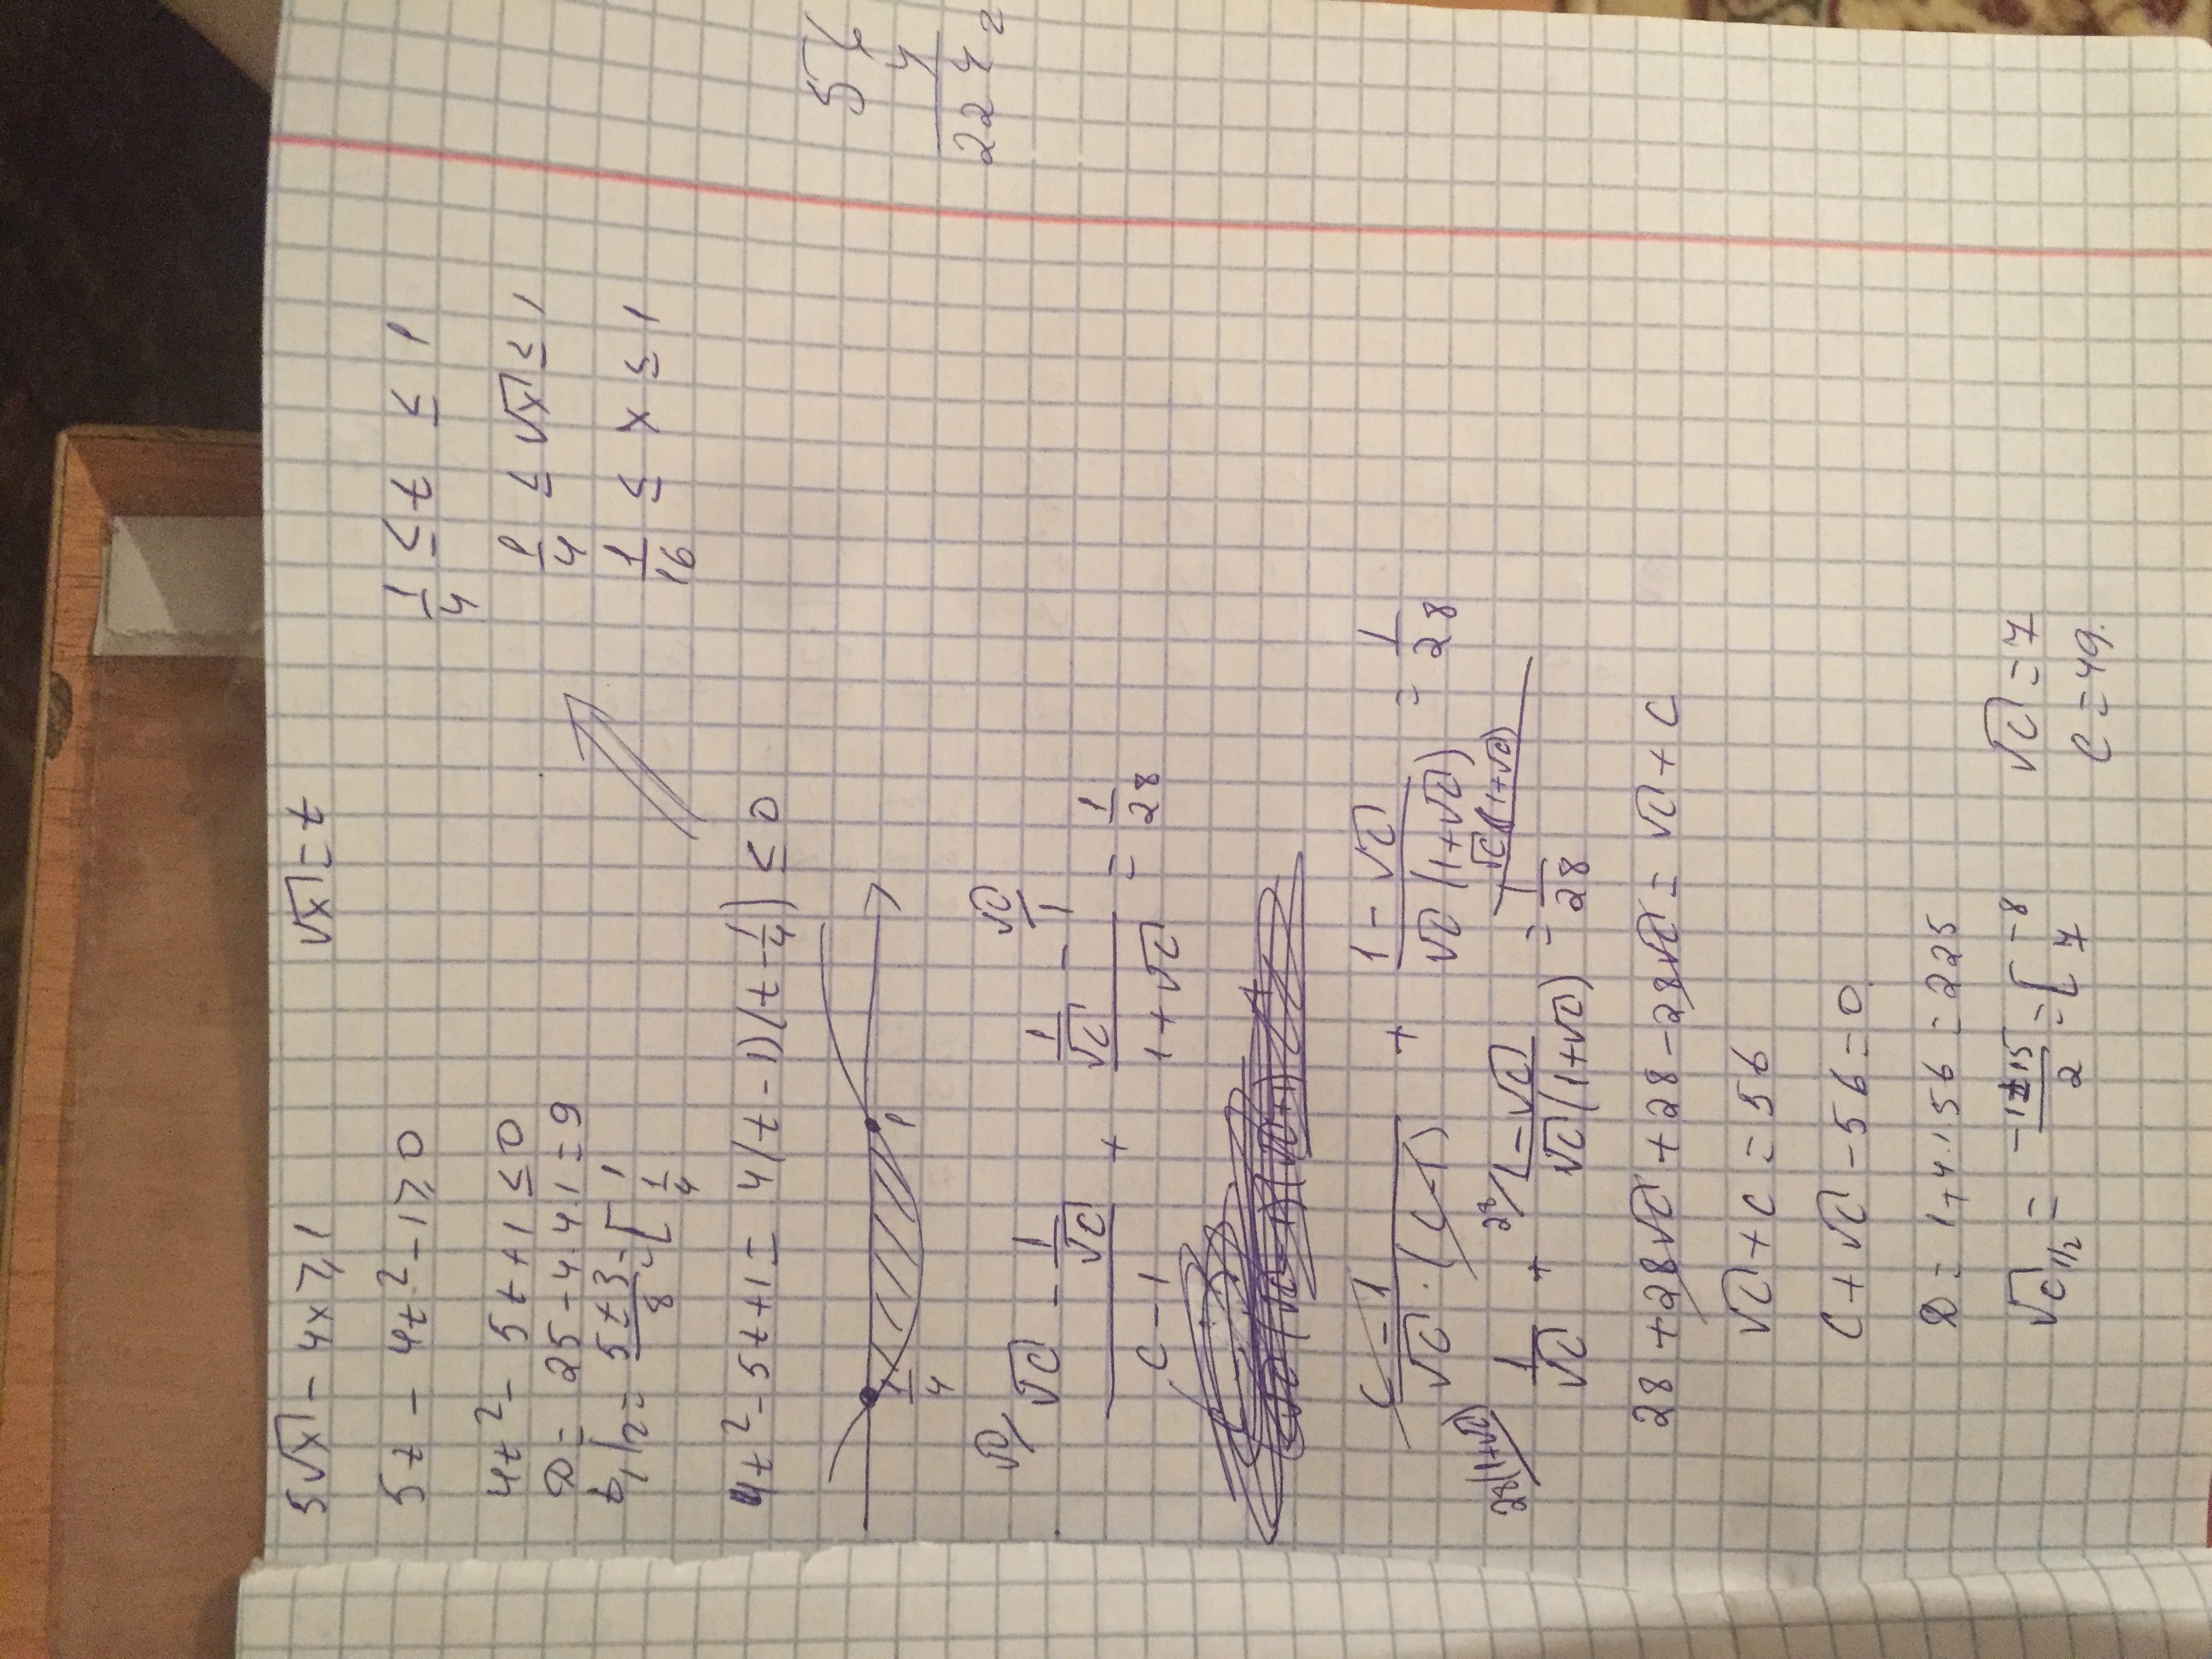 5√x - 4x ≥ 1    √x = t
5t - 4t² - 1 ≥ 0
4t² - 5t + 1 ≤ 0
D = 25 - 4·4·1 = 9
t₁/₂ = (5 ± 3)/8 = [ 1  1/4
4t² - 5t + 1 = 4(t - 1)(t - 1/4) ≤ 0
1/4  1
1/4 ≤ t ≤ 1
1/4 ≤ √x ≤ 1
1/16 ≤ x ≤ 1
56
4
224
2
(√c/ √c - 1/√c)/(c - 1) + (1/√c - √c/1)/(1 + √c) = 1/28
(c - 1)/(√c · (c - 1)) + (1 - √c)/(√c(1 + √c)) = 1/28
√c(1+√c)
28(1+√c)/ 1/√c + 28/ (1 - √c)/(√c(1 + √c)) = 1/28
28 + 28√c + 28 - 28√c = √c + c
√c + c = 56
c + √c - 56 = 0
D = 1 + 4·1·56 = 225
√c₁/₂ = (-1 ± 15)/2 = [ -8  7
√c = 7
c = 49.